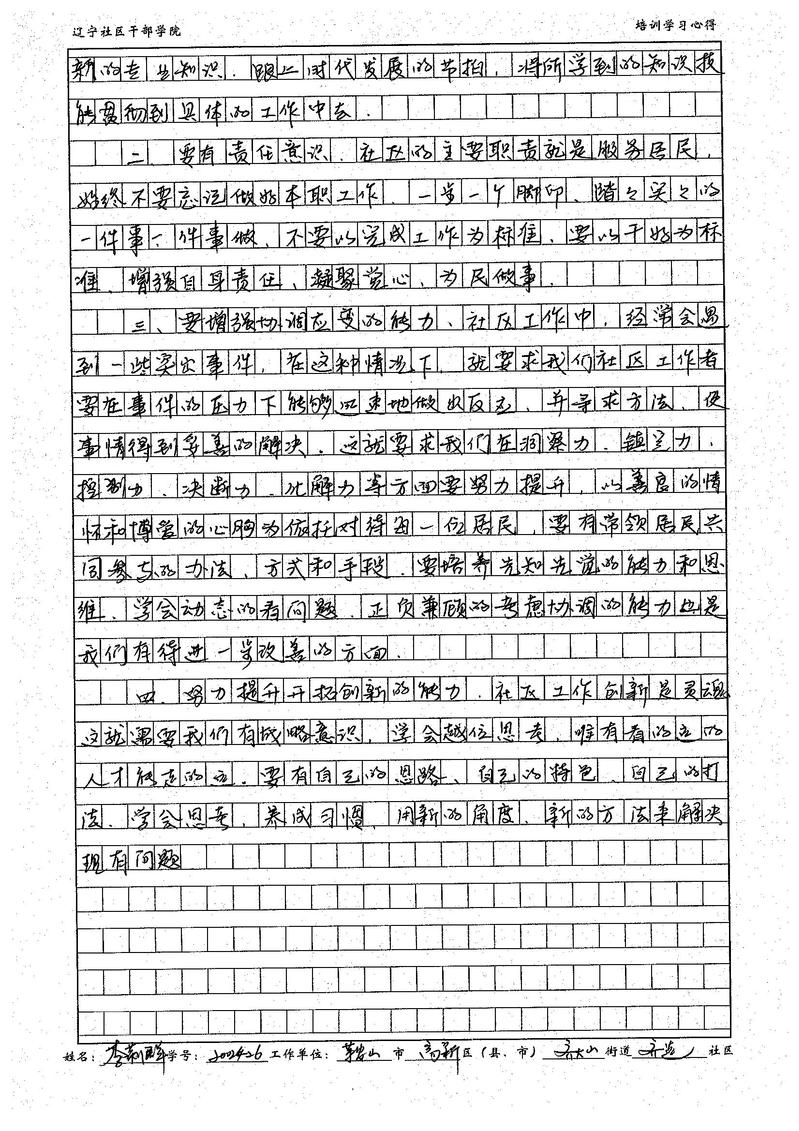 辽宁社区干部学院 培训学习心得
新的专业知识．跟上时代发展的节拍，将所学到的知识技
能贯彻到具体的工作中去．
二、要有责任意识．社区的主要职责就是服务居民，
始终不要忘记做好本职工作．一步一个脚印、踏々实々的
一件事一件事做、不要以完成工作为标准、要以干好为标
准、增强自身责任、凝聚党心、为民做事．
三、要增强协调应变的能力、社区工作中，经常会遇
到一些突出事件，在这种情况下，就要求我们社区工作者
要在事件的压力下能够迅速地做出反应，并寻求方法、使
事情得到妥善的解决．这就要求我们在洞察力、镇定力、
控制力、决断力、化解力等方面要努力提升，以善良的情
怀和博爱的心胸为依托对待每一位居民，要有带领居民共
同参与的办法，方式和手段．要培养先知先觉的能力和思
维、学会动态的看问题．正负兼顾的考虑协调的能力也是
我们有得进一步改善的方面．
四、努力提升开拓创新的能力．社区工作创新是灵魂
这就需要我们有战略意识，学会越位思考，唯有看的远的
人才能走的远．要有自己的思路、自己的特色、自己的打
法．学会思考，养成习惯，用新的角度、新的方法来解决
现有问题
姓名： 学号： 工作单位： 鞍山 市 高新 区（县、市） 齐大山 街道 社区